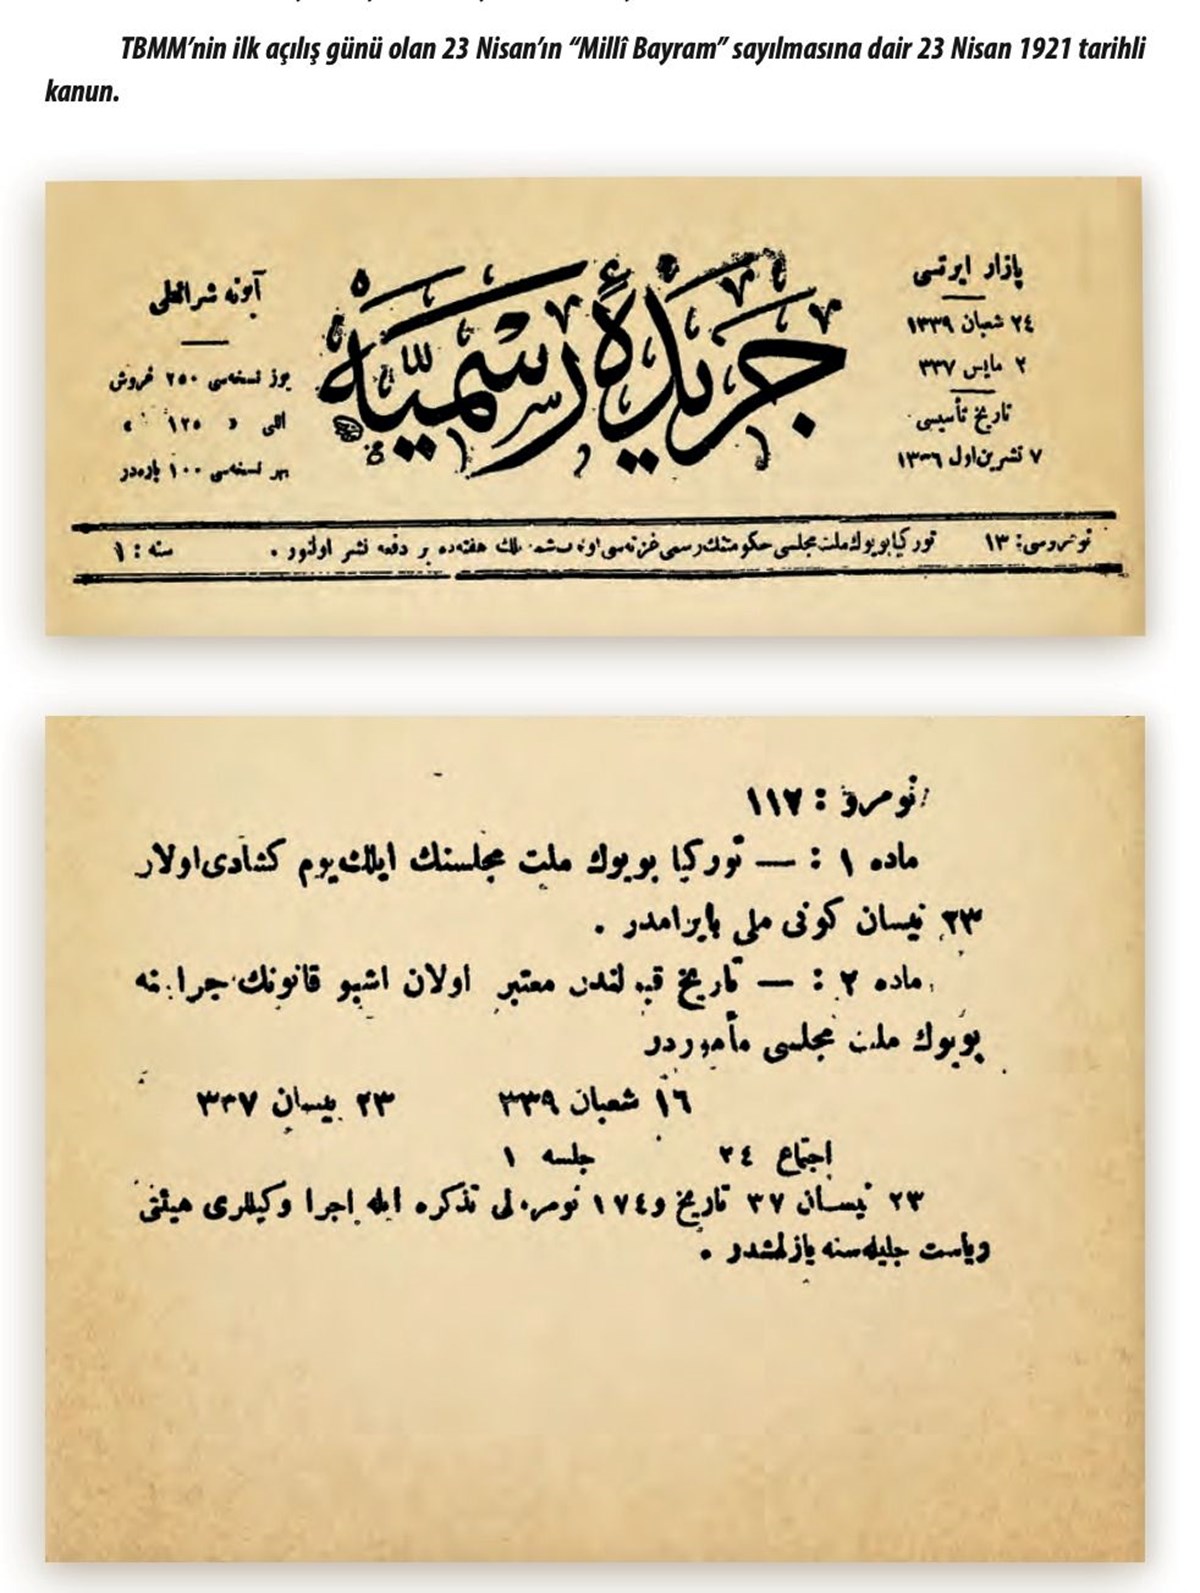 TBMM’nin ilk açılış günü olan 23 Nisan’ın “Millî Bayram” sayılmasına dair 23 Nisan 1921 tarihli
kanun.
پازار ایرتسی
٢٤ شعبان ١٣٣٩
٢ مایس ٣٣٧
تاریخ تأسیسی
٧ تشرین اول ١٣٣٦
جریدهٔ رسمیه
آبونه شرائطی
یوز نسخه‌سی ٢٥٠ غروش
اللی » ١٢٥ »
بهر نسخه‌سی ١٠٠ پاره‌در
نومروسی: ١٣
تورکیا بویوك ملت مجلسی حکومتنك رسمی غزته‌سی اولوب شمدیلك هفته‌ده بر دفعه نشر اولنور .
سنه : ١
نومرو : ١١٢
ماده ١ : — تورکیا بویوك ملت مجلسنك ایلك یوم کشادی اولان
٢٣ نیسان کونی ملی بایرامدر .
ماده ٢ : — تاریخ قبولندن معتبر اولان اشبو قانونك اجراسنه
بویوك ملت مجلسی مأموردر
١٦ شعبان ٣٣٩ ٢٣ نیسان ٣٣٧
اجتماع ٢٤ جلسه ١
٢٣ نیسان ٣٧ تاریخ و ١٧٤ نومرولی تذکره ایله اجرا وکیللری هیئتی
ریاست جلیله‌سنه یازلمشدر .